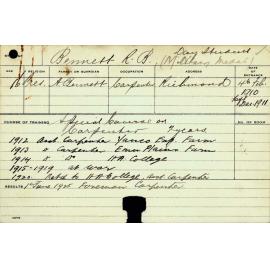 Bennett R. B. Day Student
(Military Medal)
AGE RELIGION PARENT OR GUARDIAN OCCUPATION ADDRESS DATE OF ENTRANCE
16 Pres. A. Bennett Carpenter Richmond 4th Feb
1910
Dec 1911
COURSE OF TRAINING Special Course as NO. OF ROOM
Carpenter 2 years
1912 Asst. Carpenter Yanco Exp. Farm
1913 " Carpenter Emu Plains Farm
1914 " Do H.A. College
1915-1919 at war
1920 Retd to H.A. College, Asst Carpenter
RESULTS 1st June 1925 Foreman Carpenter